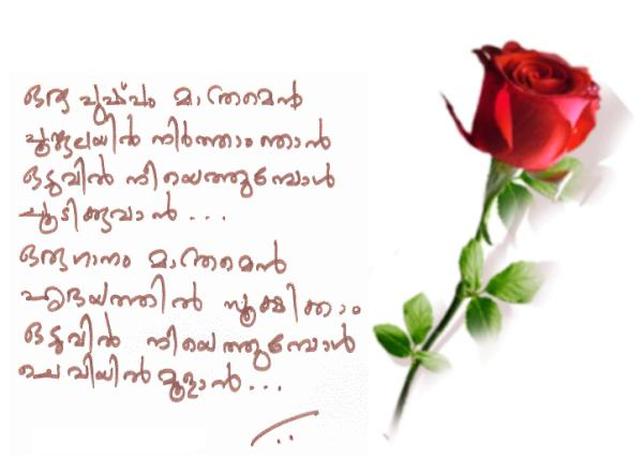 ഒരു പുഷ്പം മാത്രമെൻ
പൂങ്കുലയിൽ നിർത്താം ഞാൻ
ഒടുവിൽ നീയെത്തുമ്പോൾ
ചൂടിക്കുവാൻ...
ഒരു ഗാനം മാത്രമെൻ
ഹൃദയത്തിൽ സൂക്ഷിക്കാം
ഒടുവിൽ നീയെത്തുമ്പോൾ
ചെവിയിൽ മൂളാൻ...